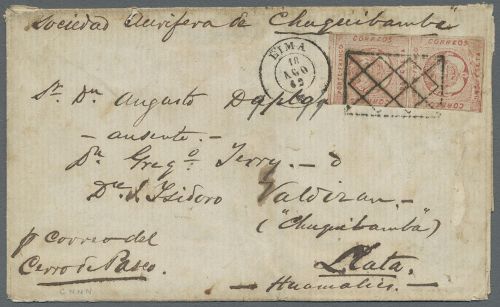 Sociedad Aurifera de "Chuquibamba"
LIMA
18
AGO
62
CORREOS
CORREOS
PORTE FRANCO
Sr. Dn. Augusto Daplas
— ausente. —
Dn. Gregº Terry. — ò
Dn. Isidoro Valdizan. —
("Chuquibamba")
p correo del
Cerro de Pasco.
Llata.
— Huamalies. —